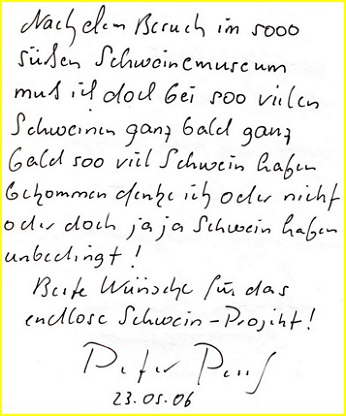 Nach dem Besuch im sooo
süßen Schweinemuseum
muß ich doch bei soo vielen
Schweinen ganz bald ganz
bald soo viel Schwein haben
bekommen denke ich oder nicht
oder doch ja ja Schwein haben
unbedingt!
Beste Wünsche für das
endlose Schwein-Projekt!
Peter
23.05.06